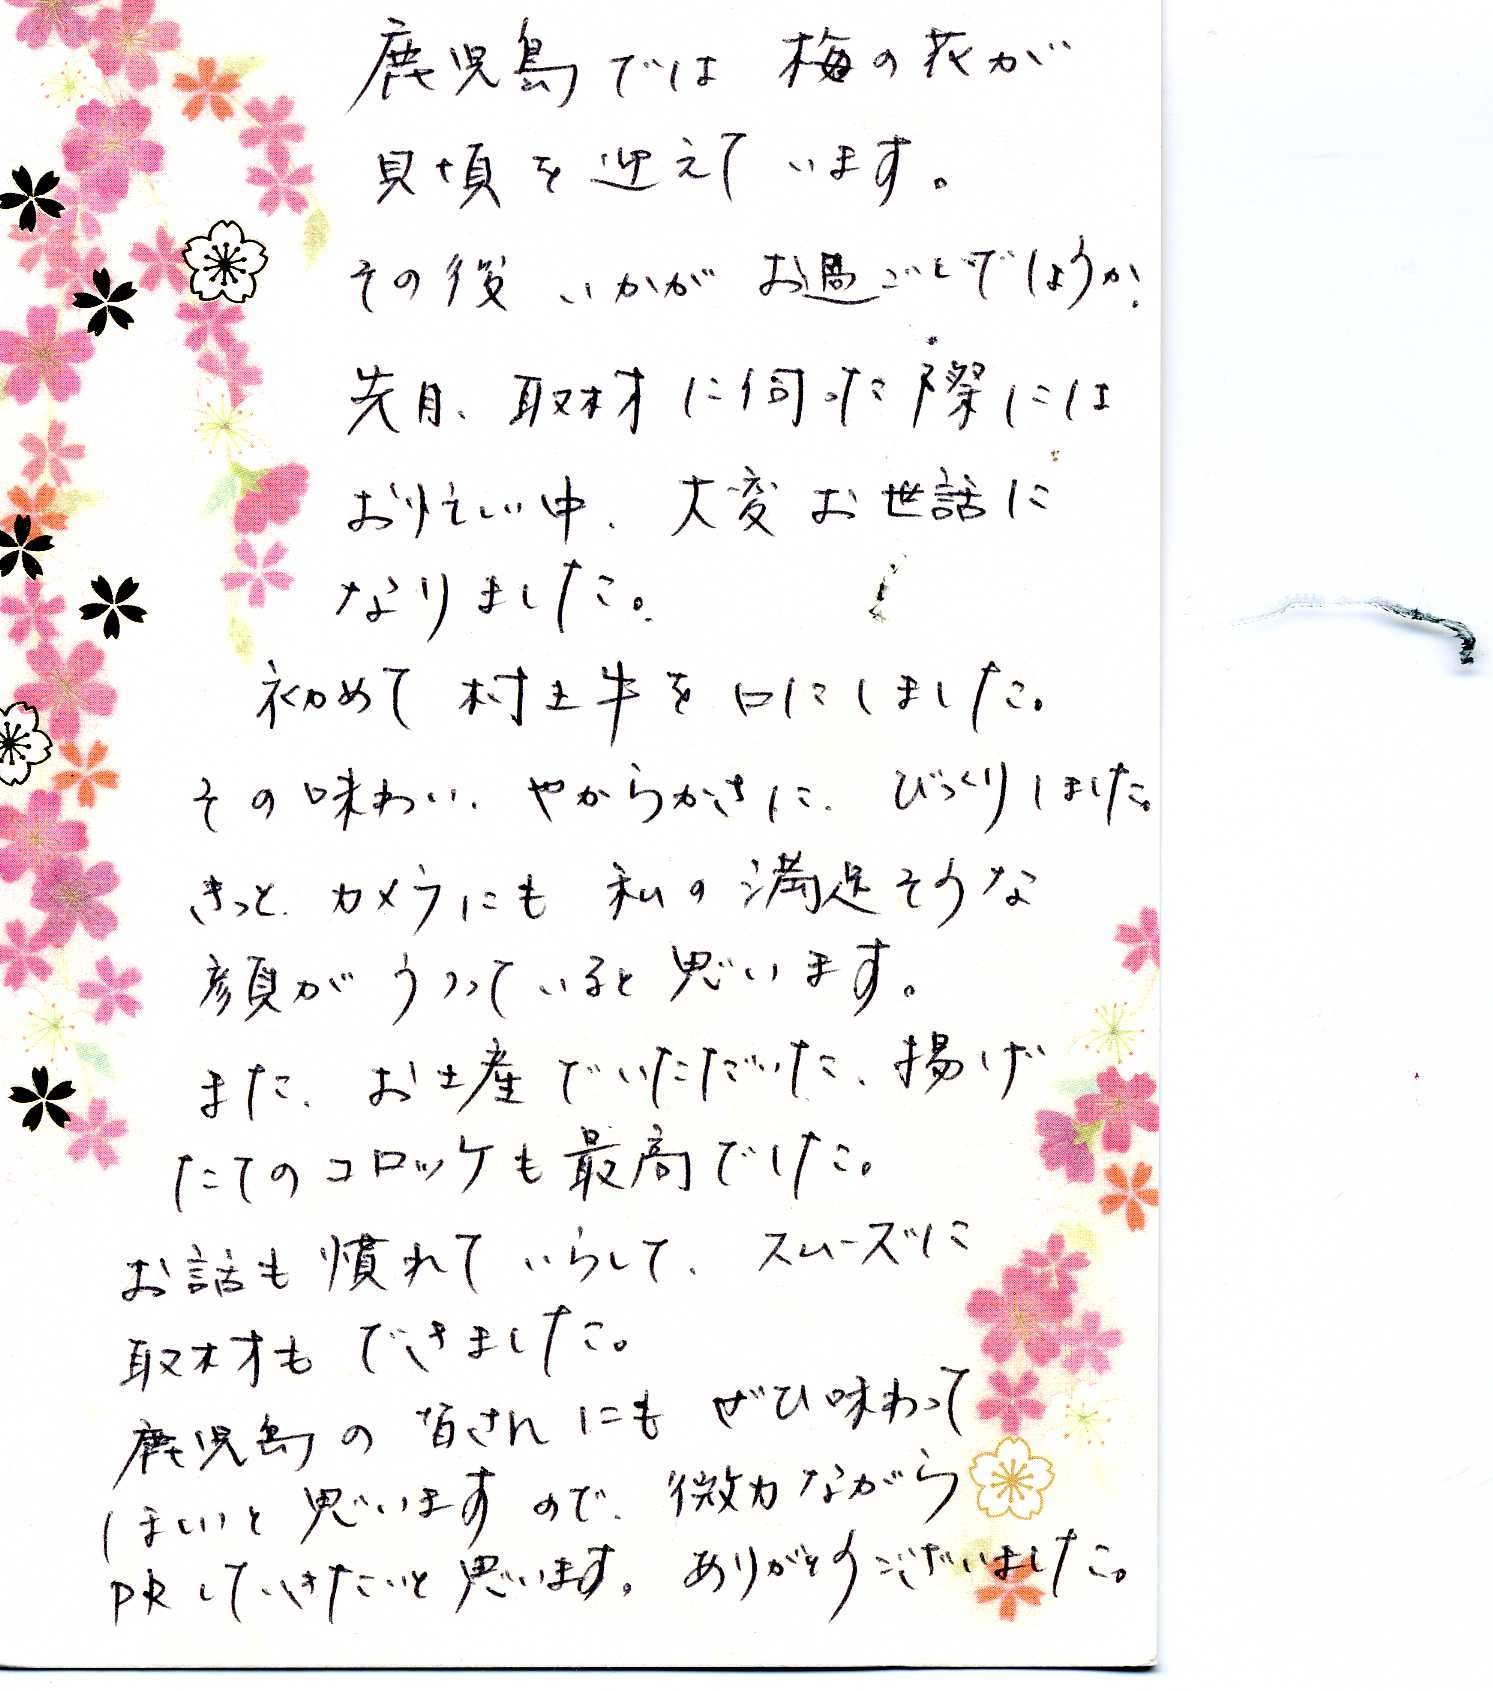 鹿児島では 梅の花が
見頃を迎えています。
その後 いかが お過ごしでしょうか?
先月、取材に伺った際には
お忙しい中、大変お世話に
なりました。
初めて 村上牛を口にしました。
その味わい、やわらかさに、びっくりしました。
きっと、カメラにも 私の満足そうな
顔がうつっていると思います。
また、お土産でいただいた、揚げ
たてのコロッケも最高でした。
お話も慣れていらして、スムーズに
取材もできました。
鹿児島の皆さんにも ぜひ味わって
ほしいと思いますので、微力ながら
PRしていきたいと思います。ありがとうございました。